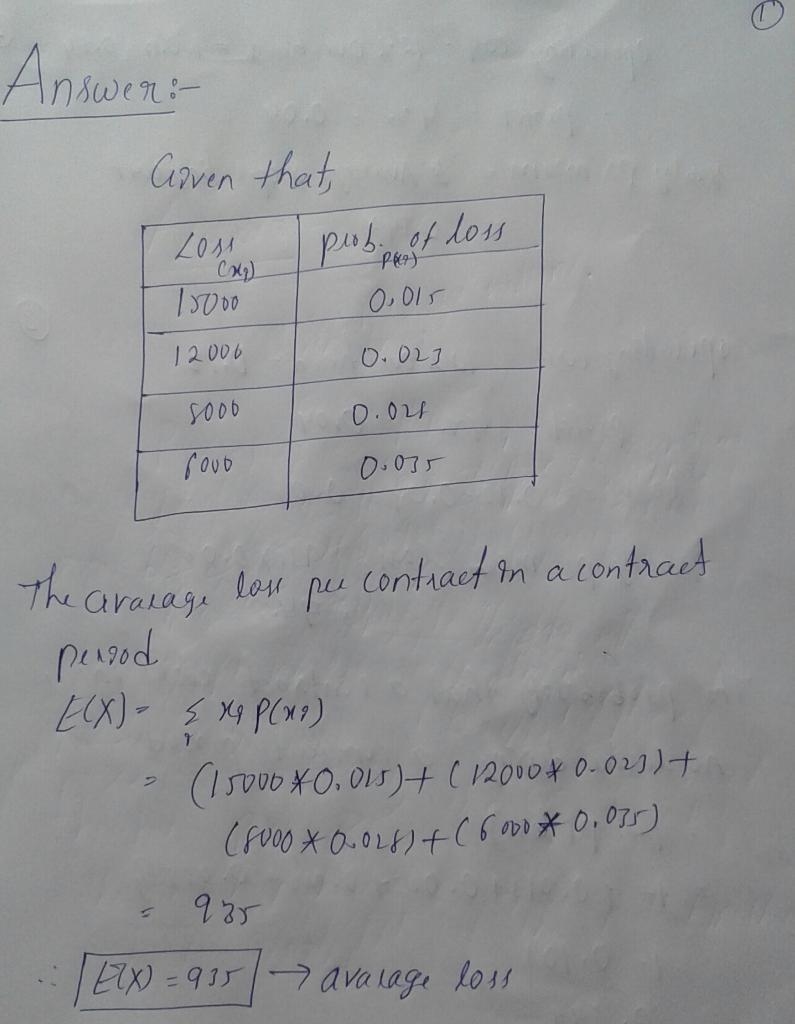 1
Answer:-
Given that,
Loss (xi) prob. of loss P(xi)
15000 0.015
12000 0.023
8000 0.028
6000 0.035
The avarage loss per contract in a contract
period
E(X) = Σ xi P(xi)
i
= (15000*0.015)+(12000*0.023)+
(8000*0.028)+(6000*0.035)
= 935
∴ E(X) = 935 → avarage loss